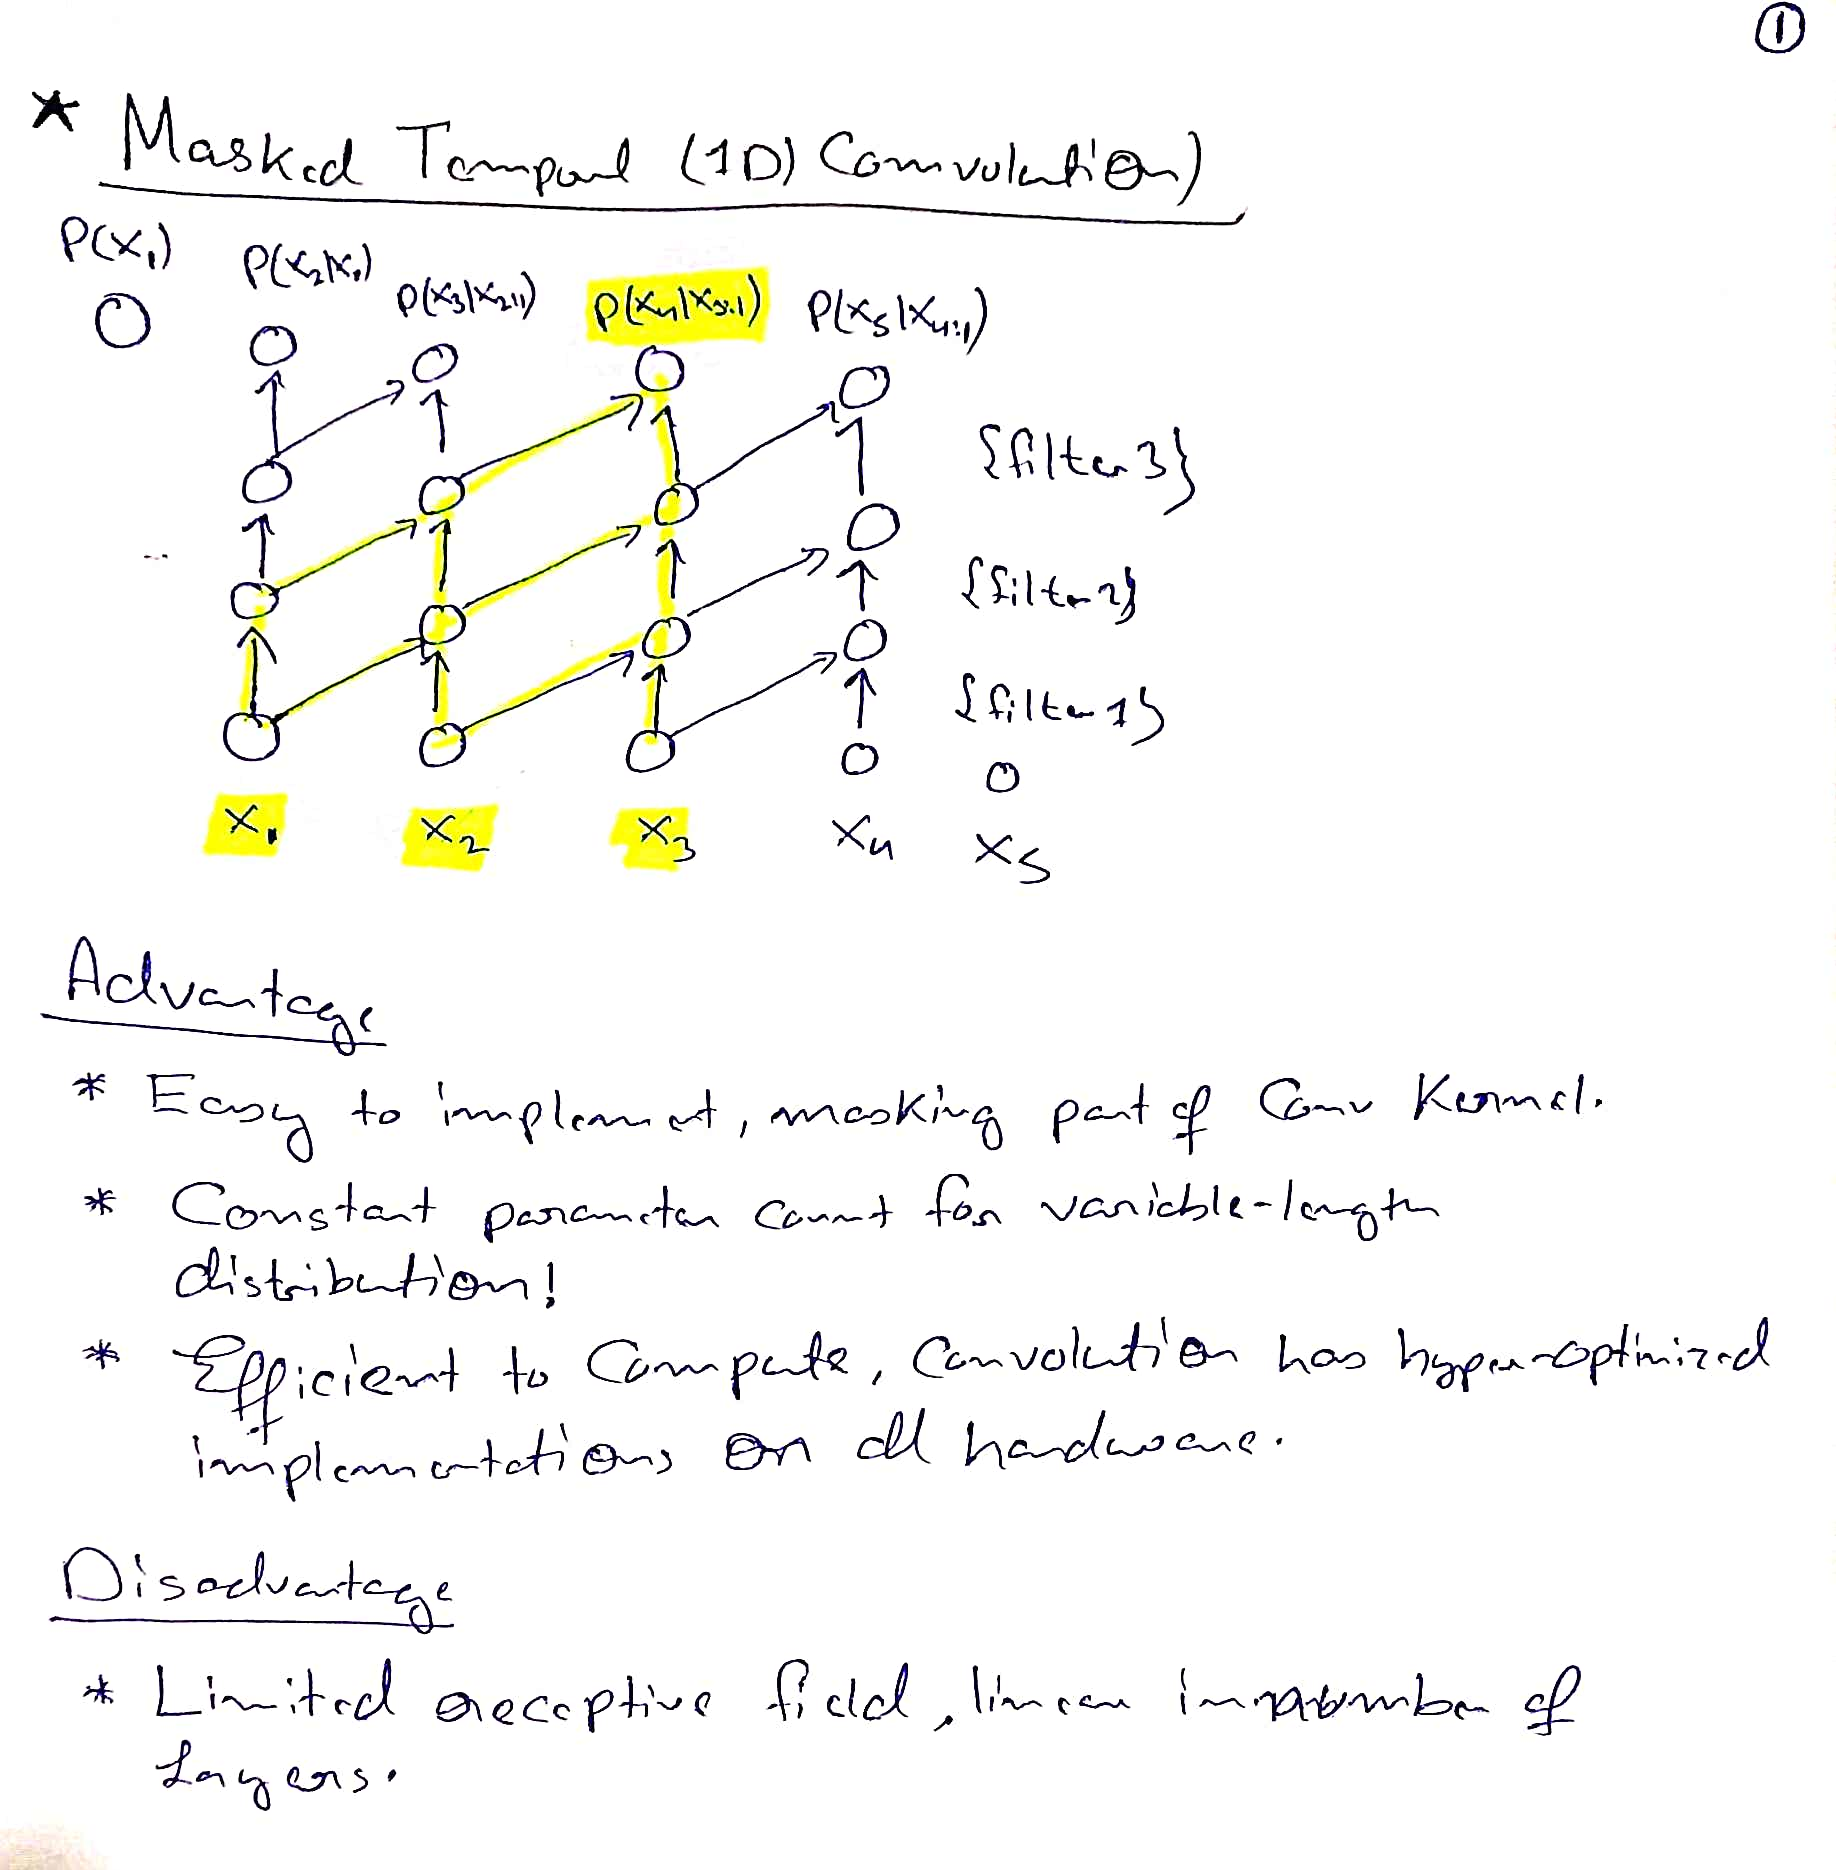 ①
* Masked Temporal (1D) Convolution)
P(X₁) P(X₂|X₁) P(X₃|X₂:₁) P(X₄|X₃:₁) P(X₅|X₄:₁)
{filter 3}
{filter 2}
{filter 1}
X₁ X₂ X₃ X₄ X₅
Advantage
* Easy to implement, masking part of Conv Kernel.
* Constant parameter count for variable-length
distribution!
* Efficient to Compute, Convolution has hyper-optimized
implementations on all hardware.
Disadvantage
* Limited receptive field, linear in number of
Layers.